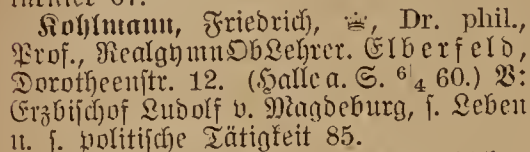 Kohlmann, Friedrich, Dr. phil.,
Prof., RealgymnObLehrer. Elberfeld,
Dorotheenstr. 12. (Halle a. S. 6/4 60.) V:
Erzbischof Ludolf v. Magdeburg, s. Leben
u. s. politische Tätigkeit 85.